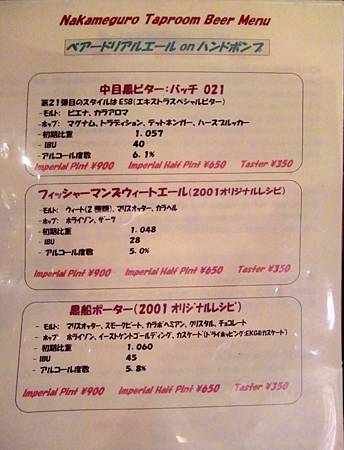 Nakameguro Taproom Beer Menu
ベアードリアルエール on ハンドポンプ
中目黒ビター:バッチ 021
第21弾目のスタイルは ESB(エキストラスペシャルビター)
- モルト: ピエナ、カラアロマ
- ホップ: マグナム、トラディション、テットネンガー、ハースブルッカー
- 初期比重 1. 057
- IBU 40
- アルコール度数 6. 1%
Imperial Pint ¥900 Imperial Half Pint ¥650 Taster ¥350
フィッシャーマンズウィートエール(2001オリジナルレシピ)
- モルト: ウィート(2 種類)、マリスオッター、カラヘル
- ホップ: ホライゾン、ザーツ
- 初期比重 1. 048
- IBU 28
- アルコール度数 5. 0%
Imperial Pint ¥900 Imperial Half Pint ¥650 Taster ¥350
黒船ポーター(2001 オリジナルレシピ)
- モルト: マリスオッター、スモークピート、カラボヘミアン、クリスタル、チョコレート
- ホップ: ホライゾン、イーストケントゴールディング、カスケード(ドライホッピング:EKG&カスケード)
- 初期比重 1. 060
- IBU 45
- アルコール度数 5. 8%
Imperial Pint ¥900 Imperial Half Pint ¥650 Taster ¥350